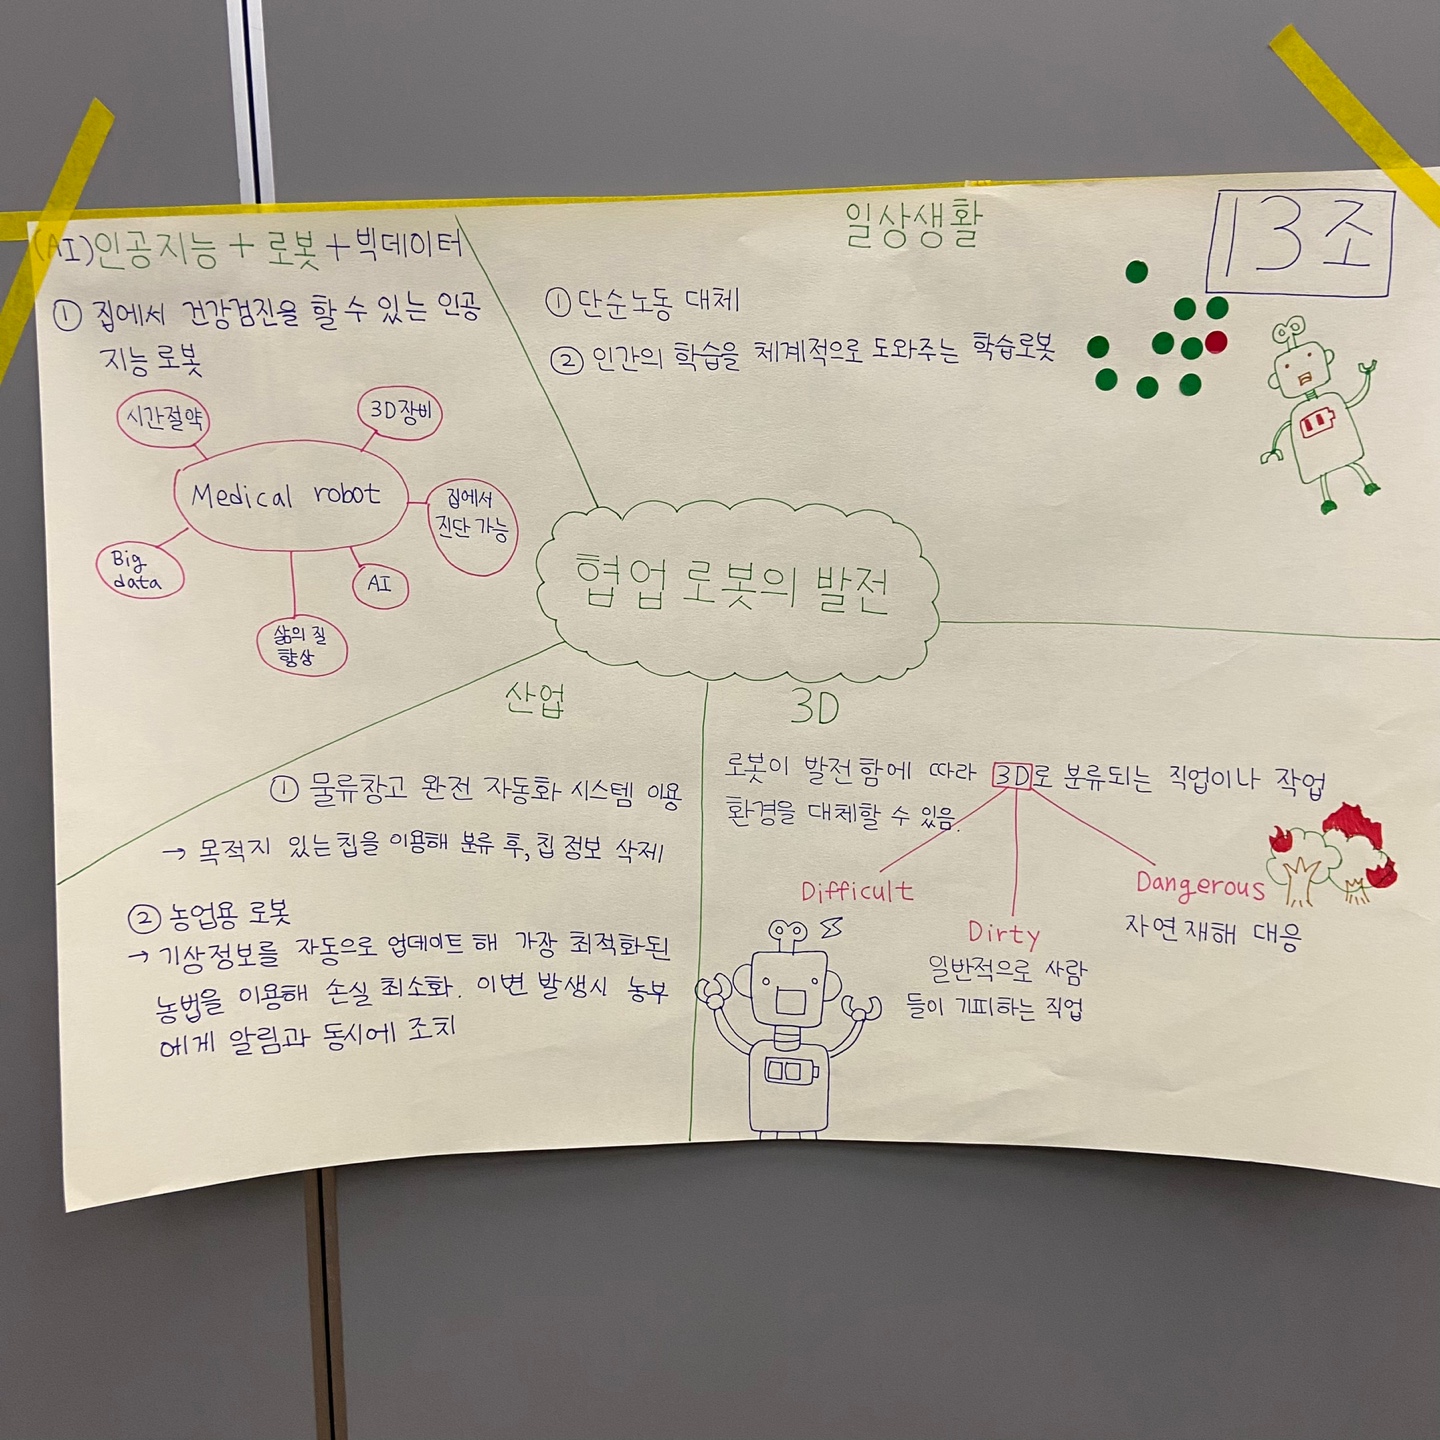 (AI)인공지능 + 로봇 + 빅데이터
① 집에서 건강검진을 할 수 있는 인공
지능 로봇
시간절약
3D장비
Medical robot
집에서
진단 가능
Big
data
AI
삶의 질
향상
일상생활
13조
① 단순노동 대체
② 인간의 학습을 체계적으로 도와주는 학습로봇
협업 로봇의 발전
산업
① 물류창고 완전 자동화 시스템 이용
→ 목적지 있는 칩을 이용해 분류 후, 칩 정보 삭제
② 농업용 로봇
→ 기상정보를 자동으로 업데이트 해 가장 최적화된
농법을 이용해 손실 최소화. 이변 발생시 농부
에게 알림과 동시에 조치
3D
로봇이 발전함에 따라 3D로 분류되는 직업이나 작업
환경을 대체할 수 있음.
Difficult
Dirty
일반적으로 사람
들이 기피하는 직업
Dangerous
자연재해 대응